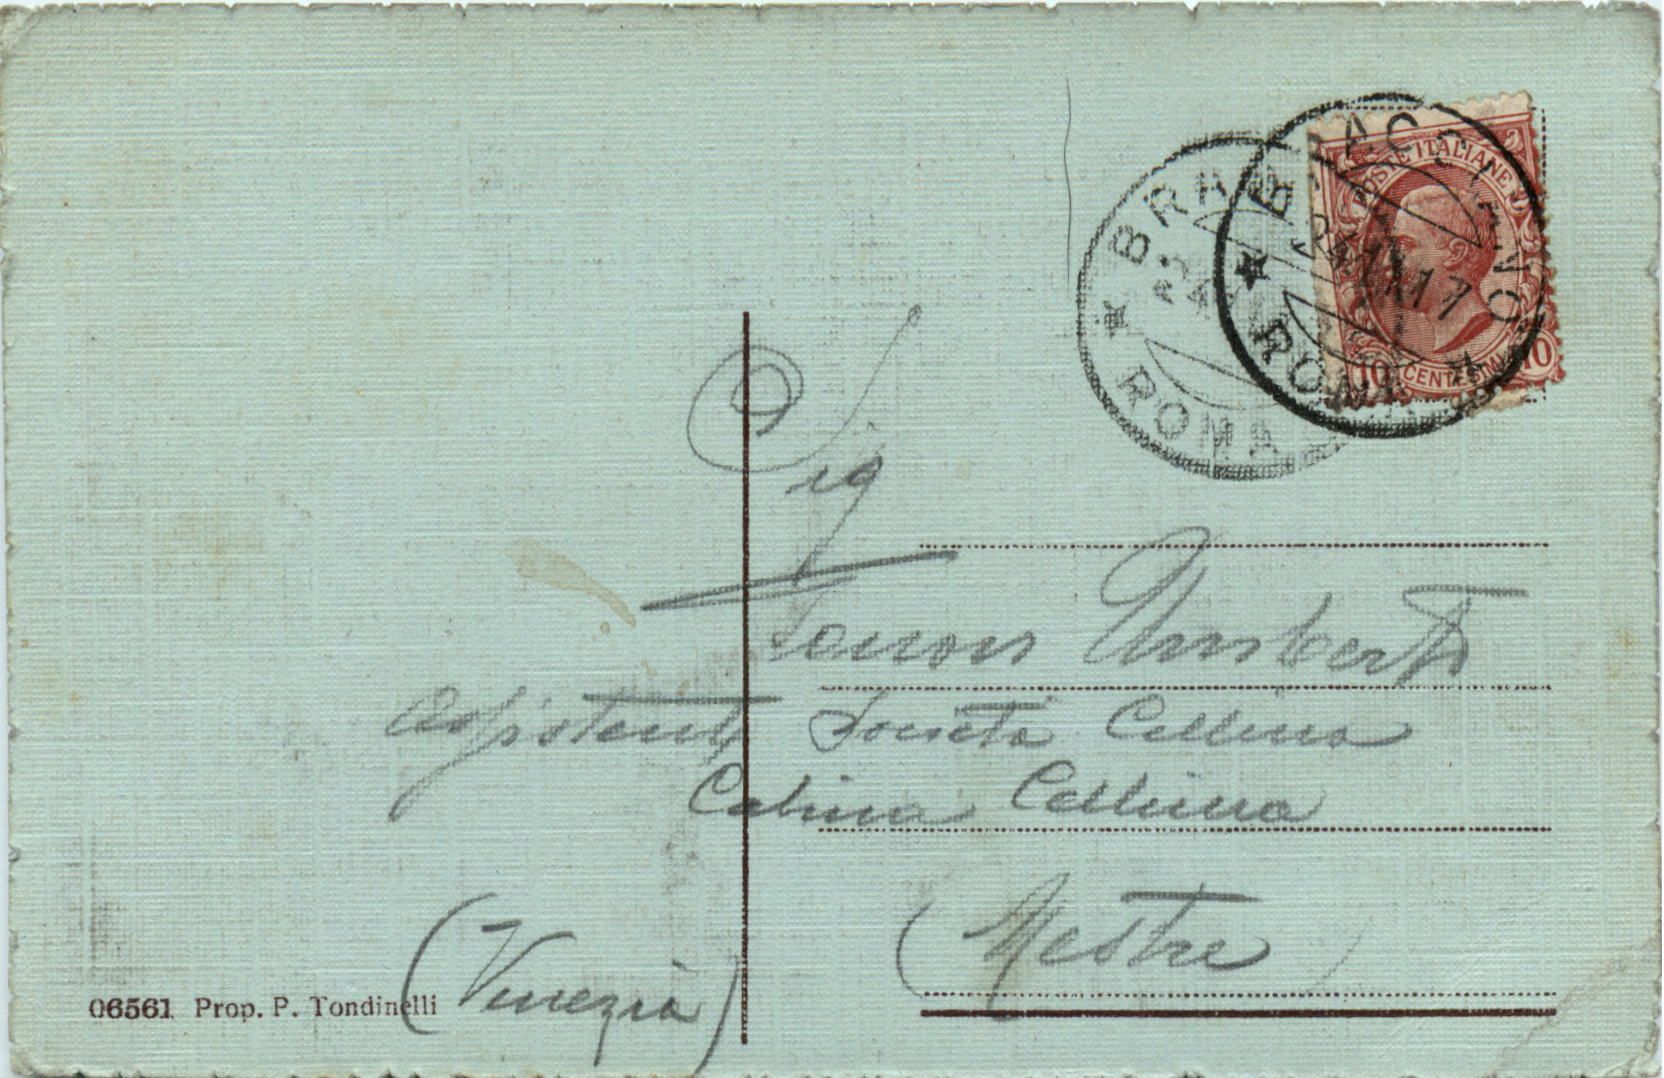 POSTE ITALIANE
BRACCIANO
24 17
★ ROMA ★
10 CENTESIMI 10
BRA
24
★ ROMA
Sig
Umberto
Assistente Società Cellina
Cabina Cellina
(Mestre)
(Venezia)
06561 Prop. P. Tondinelli